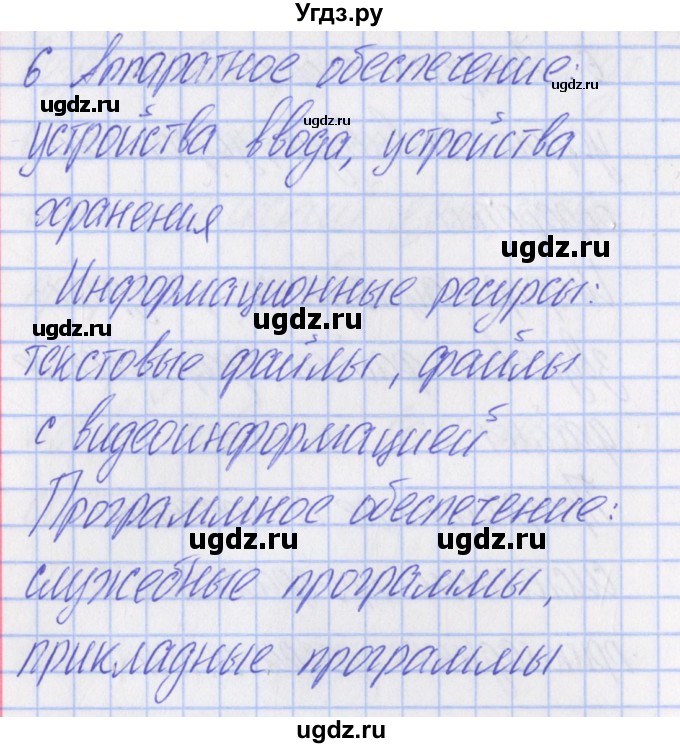 Угдз.ру
6 Аппаратное обеспечение:
ugdz.ru
ugdz.ru
ugdz.ru
устройства ввода, устройства
хранения
ugdz.ru
Информационные ресурсы:
ugdz.ru
ugdz.ru
текстовые файлы, файлы
с видеоинформацией
Программное обеспечение:
ugdz.ru
ugdz.ru
служебные программы,
прикладные программы
ugdz.ru